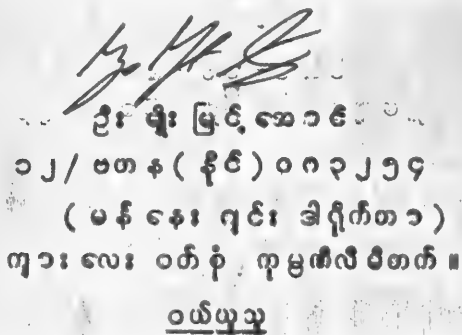 ဦး မျိုး မြင့် အောင်
၁၂/ ဗဟန ( နိုင် ) ၀၈၃၂၅၄
( မန် နေး ဂျင်း ဒါရိုက်တာ )
ကျား လေး ဝတ်စုံ ကုမ္ပဏီလီမိတက် ။
ဝယ်ယူသူ